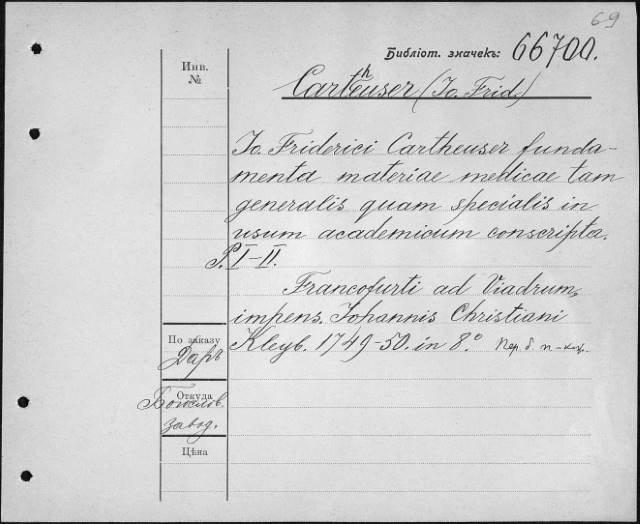 69
Библіот. значекъ: 66700.
Инв.
№
Cartheuser (Io. Frid.)
Io. Friderici Cartheuser funda-
menta materiae medicae tam
generalis quam specialis in
usum academicum conscripta.
P. I-II.
Francofurti ad Viadrum,
impens. Iohannis Christiani
Kleyb. 1749-50. in 8.° Пер. б. п-
По заказу
Даръ
Откуда
завод.
Цѣна